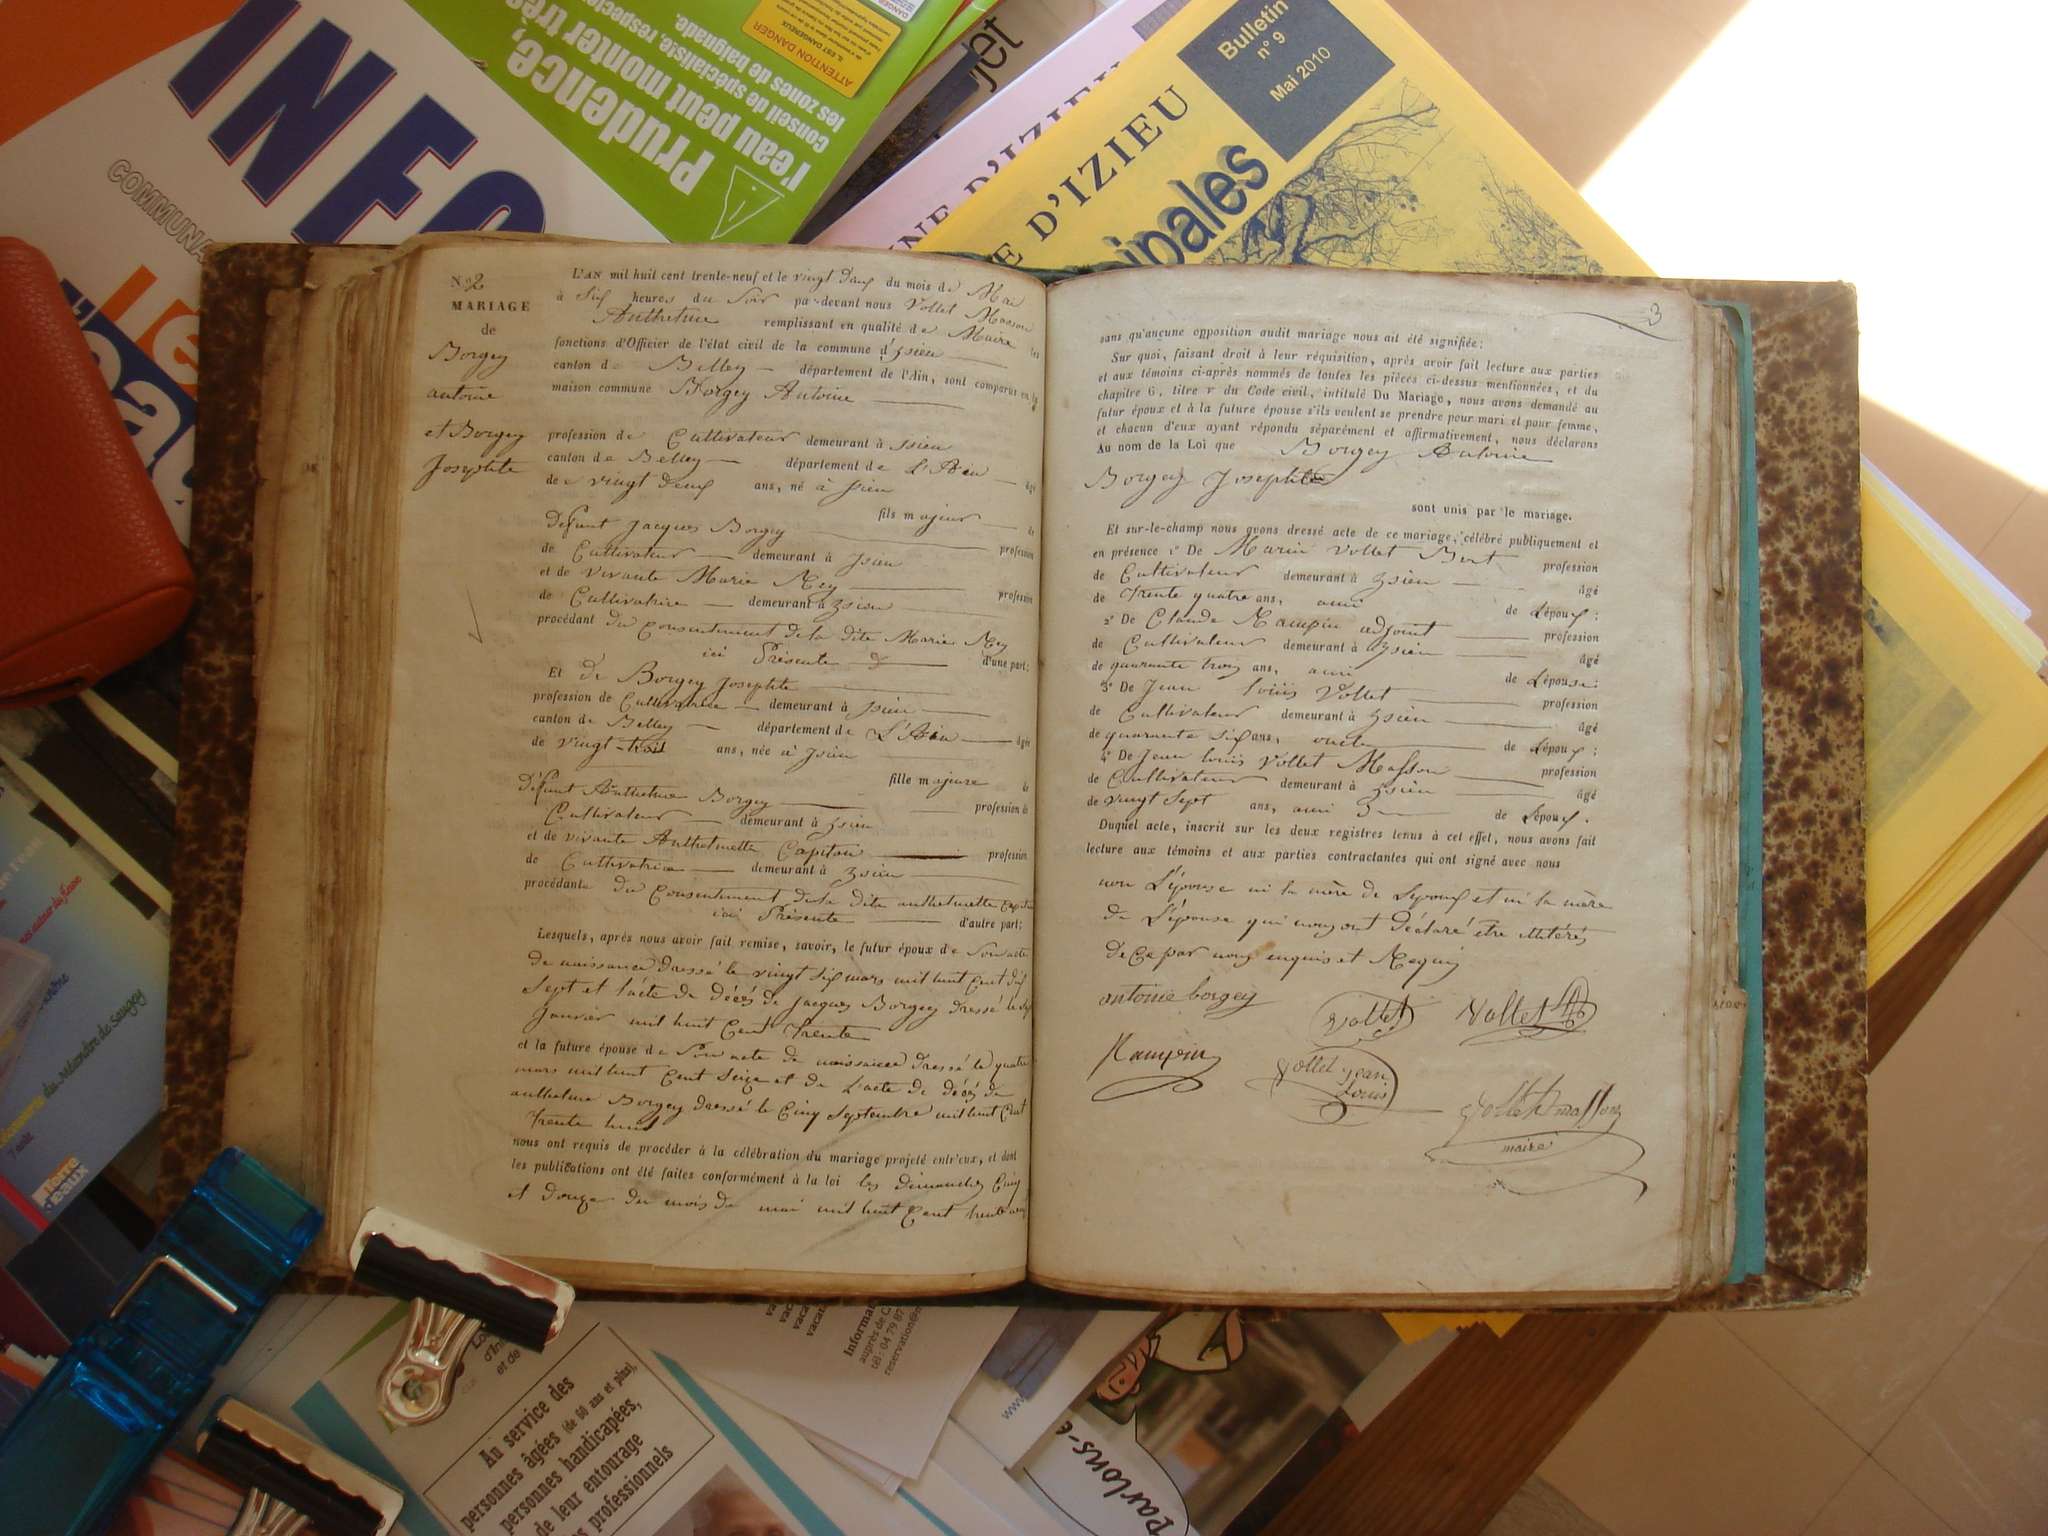 INFO
COMMUNA
Prudence,
l'eau peut monter très
conseil de spécialiste, respectez
les zones de baignade.
ATTENTION DANGER
Bulletin
n° 9
Mai 2010
NE D'IZIEU
E D'IZIEU
ipales
N° 2
MARIAGE
de
Borgey
antoine
et Borgey
Josephte
L'AN mil huit cent trente-neuf et le vingt deux du mois de Mai
à Six heures du Soir par-devant nous Vollet Masson
Anthelme remplissant en qualité de Maire les
fonctions d'Officier de l'état civil de la commune d'Izieu
canton de Belley département de l'Ain, sont comparus en la
maison commune Borgey Antoine
profession de Cultivateur demeurant à Izieu
canton de Belley département de L'Ain âgé
de vingt deux ans, né à Izieu
fils majeur de
Défunt Jacques Borgey profession
de Cultivateur demeurant à Izieu
et de vivante Marie Rey profession
de Cultivatrice demeurant à Izieu
procédant du Consentement de la dite Marie Rey
ici Présente d'une part;
Et de Borgey Josephte
profession de Cultivatrice demeurant à Izieu
canton de Belley département de L'Ain âgée
de vingt-trois ans, née à Izieu
fille majeure de
Défunt Anthelme Borgey profession de
Cultivateur demeurant à Izieu
et de vivante Anthelmette Capitan profession
de Cultivatrice demeurant à Izieu
procédante du Consentement de la dite anthelmette Capitan
ici Présente d'autre part;
Lesquels, après nous avoir fait remise, savoir, le futur époux de Son acte
de naissance dressé le vingt six mars mil huit Cent dix
Sept et l'acte de décès de Jacques Borgey dressé le six
Janvier mil huit Cent Trente
et la future épouse de Son acte de naissance dressé le quatre
mars mil huit Cent Seize et de L'acte de décès de
anthelme Borgey dressé le Cinq Septembre mil huit Cent
Trente huit
nous ont requis de procéder à la célébration du mariage projeté entr'eux, et dont
les publications ont été faites conformément à la loi les dimanches Cinq
et douze du mois de mai mil huit Cent trente neuf
3
sans qu'aucune opposition audit mariage nous ait été signifiée;
Sur quoi, faisant droit à leur réquisition, après avoir fait lecture aux parties
et aux témoins ci-après nommés de toutes les pièces ci-dessus mentionnées, et du
chapitre 6, titre v du Code civil, intitulé Du Mariage, nous avons demandé au
futur époux et à la future épouse s'ils veulent se prendre pour mari et pour femme,
et chacun d'eux ayant répondu séparément et affirmativement, nous déclarons
Au nom de la Loi que Borgey Antoine
Borgey Josephte
sont unis par le mariage.
Et sur-le-champ nous avons dressé acte de ce mariage, célébré publiquement et
en présence 1° De Marin Vollet Bert profession
de Cultivateur demeurant à Izieu âgé
de Trente quatre ans, ami de L'époux;
2° De Claude Rampin adjoint profession
de Cultivateur demeurant à Izieu âgé
de quarante trois ans, ami de L'épouse;
3° De Jean louis Vollet profession
de Cultivateur demeurant à Izieu âgé
de quarante six ans, oncle de L'époux;
4° De Jean louis Vollet Masson profession
de Cultivateur demeurant à Izieu âgé
de vingt Sept ans, ami de L'époux.
Duquel acte, inscrit sur les deux registres tenus à cet effet, nous avons fait
lecture aux témoins et aux parties contractantes qui ont signé avec nous
non L'épouse ni la mère de L'époux et ni la mère
de L'épouse qui nous ont déclaré être illitérés
de Ce par nous enquis et Requis
antoine borgey
Vollet
Vollet
Rampin
Vollet jean
louis
Vollet masson
maire
découverte du méandre de Saugey
7 août
Terre
d'eaux
Au service des
personnes âgées (de 60 ans et plus),
personnes handicapées,
de leur entourage
professionnels
Informa
auprès de C
tél : 04 79 87
reservation@
www.
Parlons-e